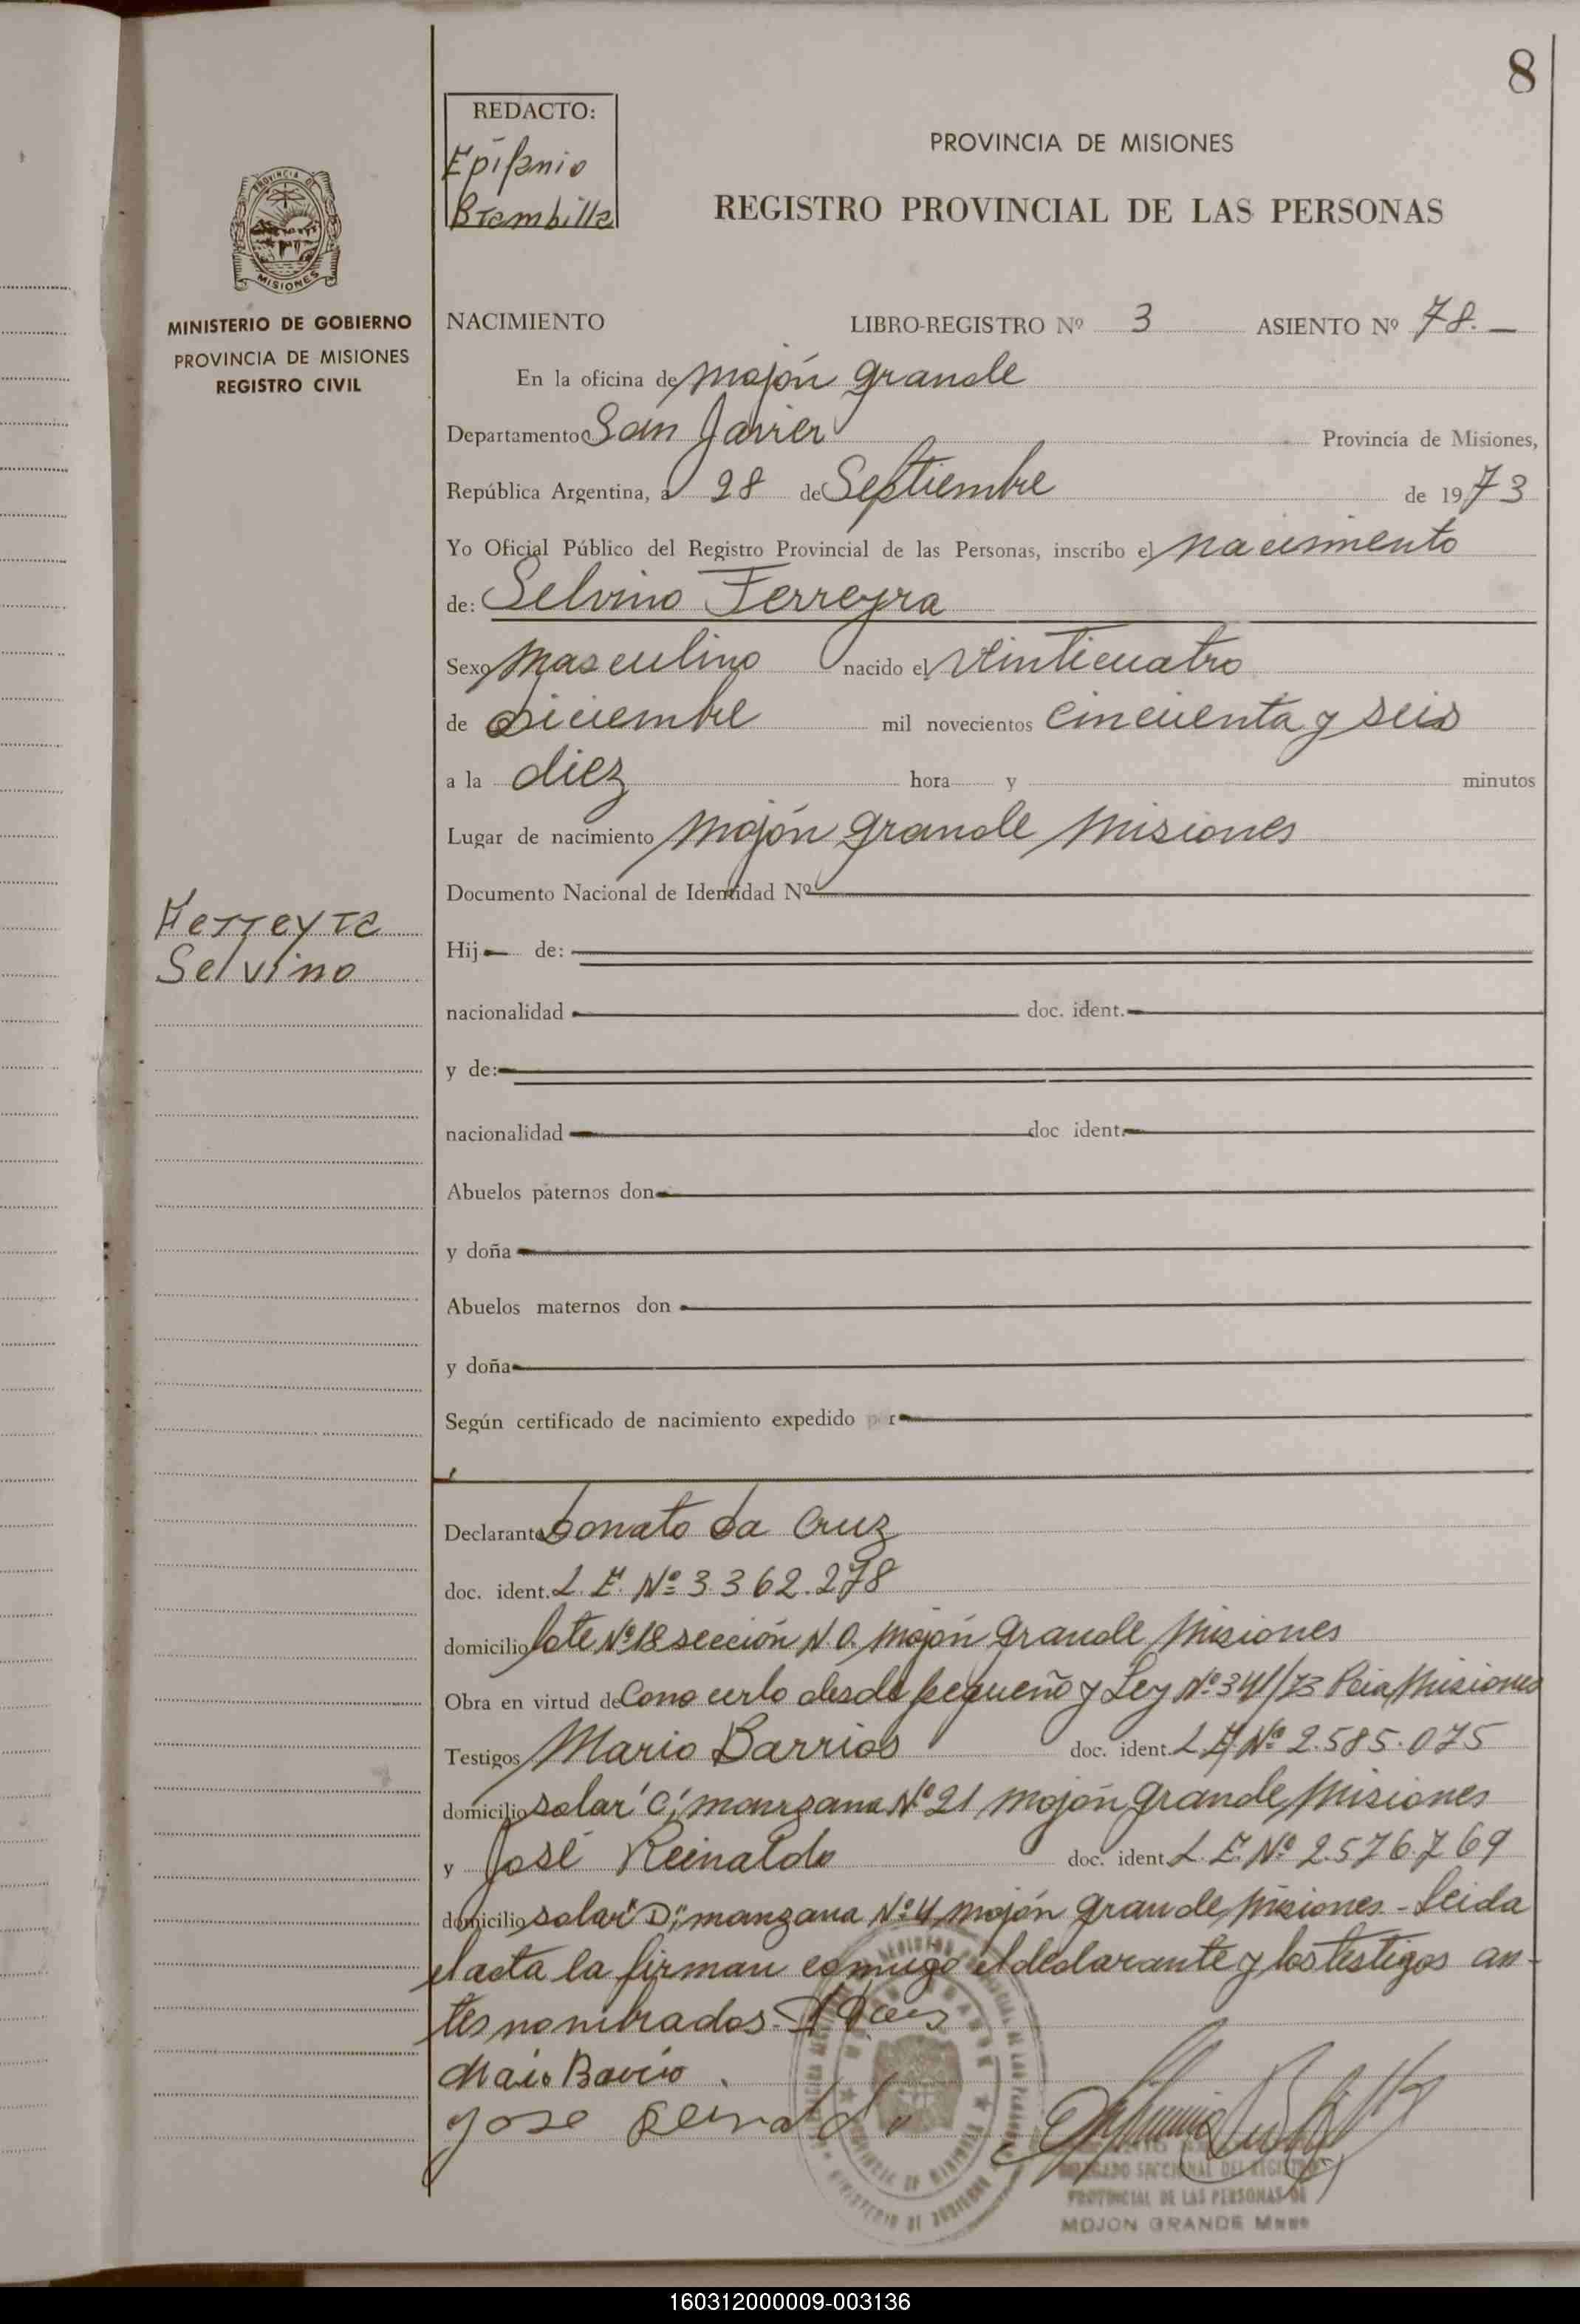 8
REDACTO:
Epifanio
Brambilla
PROVINCIA DE MISIONES
REGISTRO PROVINCIAL DE LAS PERSONAS
PROVINCIA DE
MISIONES
MINISTERIO DE GOBIERNO
PROVINCIA DE MISIONES
REGISTRO CIVIL
NACIMIENTO LIBRO-REGISTRO Nº 3 ASIENTO Nº 78.—
En la oficina de Mojón Grande
Departamento San Javier Provincia de Misiones,
República Argentina, a 28 de Septiembre de 1973
Yo Oficial Público del Registro Provincial de las Personas, inscribo el nacimiento
de: Selvino Ferreyra
Sexo Masculino nacido el Veinticuatro
de diciembre mil novecientos cincuenta y seis
a la diez hora y minutos
Lugar de nacimiento Mojón Grande Misiones
Documento Nacional de Identidad Nº
Ferreyra
Selvino
Hij de:
nacionalidad doc. ident.
y de:
nacionalidad doc ident.
Abuelos paternos don
y doña
Abuelos maternos don
y doña
Según certificado de nacimiento expedido por
Declarante Donato Da Cruz
doc. ident. L.E. Nº 3.362.278
domicilio lote Nº 18 sección N.O. Mojón Grande Misiones
Obra en virtud de Conocerlo desde pequeño y Ley Nº 341/73 Pcia Misiones
Testigos Mario Barrios doc. ident. L.E. Nº 2.585.075
domicilio solar "C" manzana Nº 21 Mojón Grande Misiones
y José Reinaldo doc. ident. L.E. Nº 2.576.769
domicilio solar "D" manzana Nº 4 Mojón Grande Misiones - Leida
el acta la firman conmigo el declarante y los testigos an-
tes nombrados.
Jose Reinaldo
DELEGADO SECCIONAL DEL REGISTRO
PROVINCIAL DE LAS PERSONAS DE
MOJON GRANDE Mnes
160312000009-003136